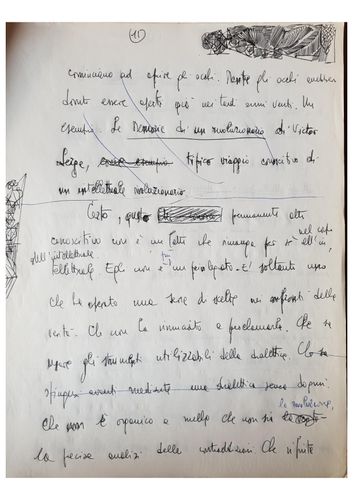 (10)
cominciano ad aprire gli occhi. Mentre gli occhi avrebbero
dovuto essere aperti già nei tardi anni venti. Un
esempio. Le Memorie di un rivoluzionario di Victor
Serge, tipico viaggio conoscitivo di
un intellettuale rivoluzionario
Certo, questo permanente
conoscitivo non è un fatto che rimanga per sé nel
dell'intellettuale
Egli non è un privilegiato. È soltanto uno
che ha operato una serie di scelte nei confronti della
verità. Che non ha rinunciato a proclamarla. Che sa
usare gli strumenti utilizzabili della dialettica. Che sa
spingersi avanti mediante una dialettica senza dogmi.
la rivoluzione,
Che non è organico a nulla che non sia
la precisa analisi delle contraddizioni che